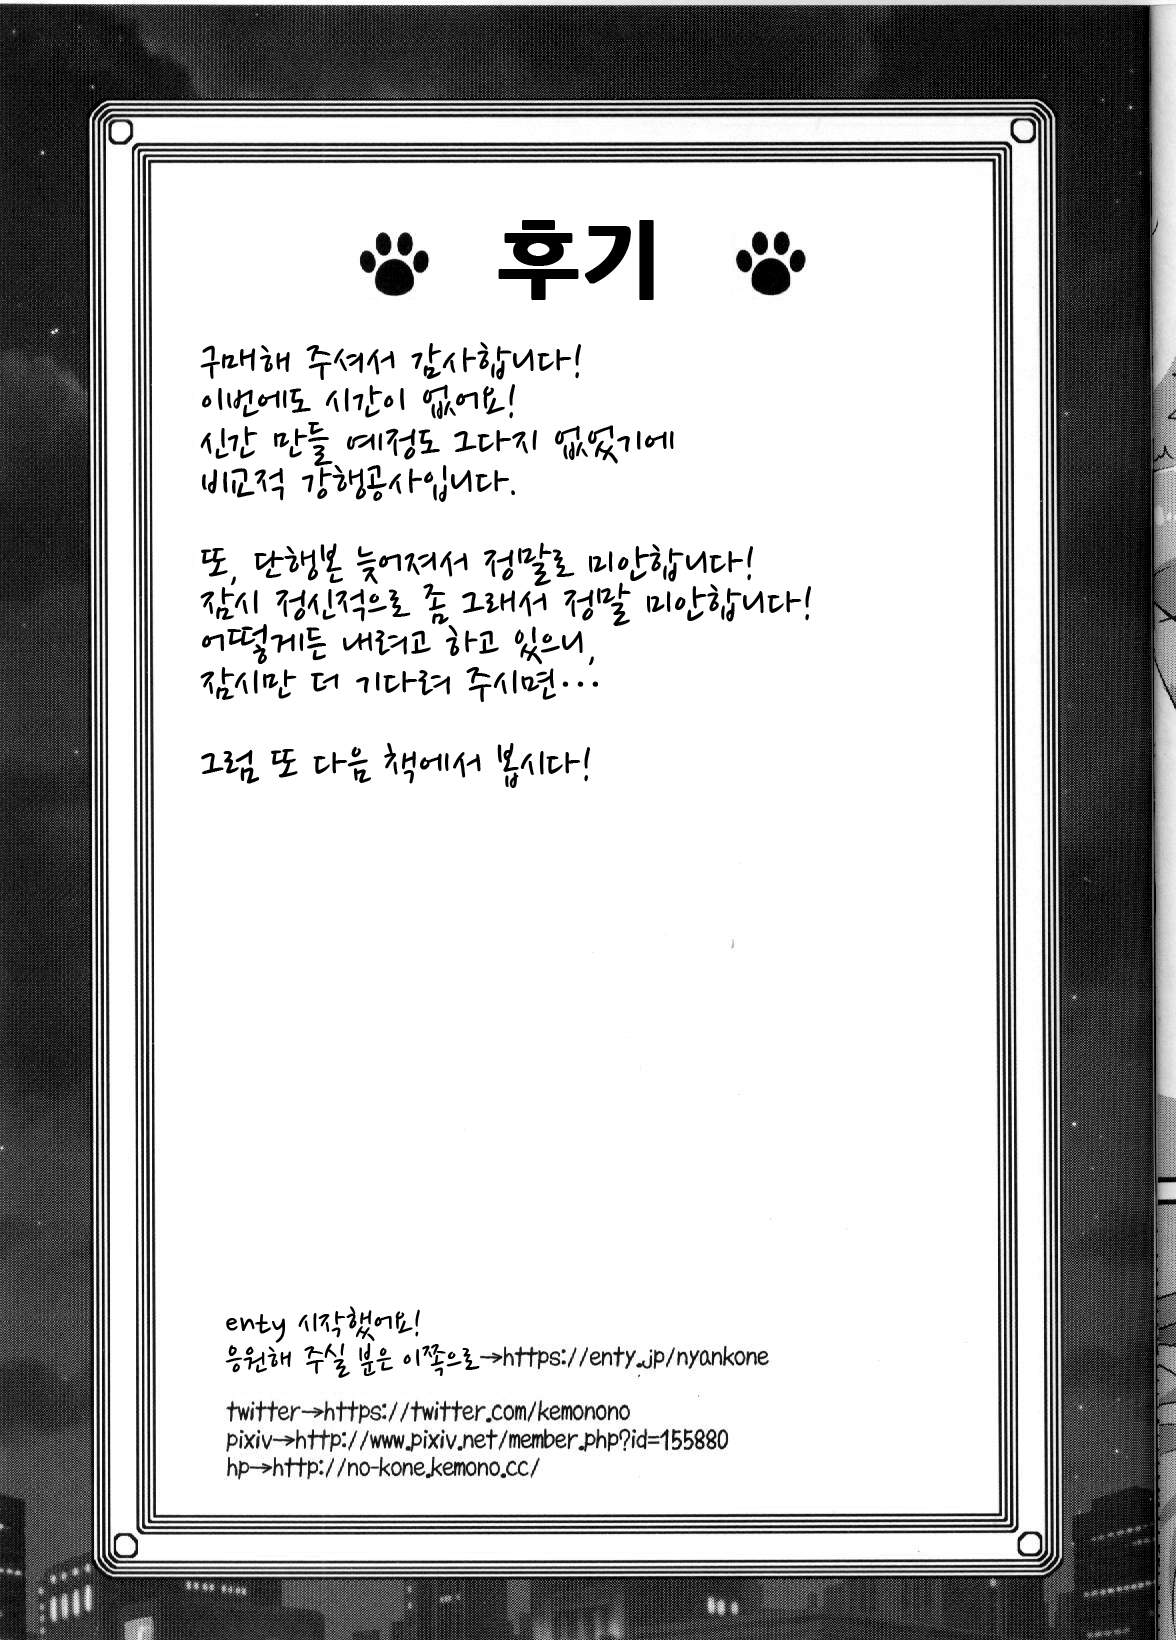 후기
구매해 주셔서 감사합니다!
이번에도 시간이 없어요!
신간 만들 예정도 그다지 없었기에
비교적 강행공사입니다.
또, 단행본 늦어져서 정말로 미안합니다!
잠시 정신적으로 좀 그래서 정말 미안합니다!
어떻게든 내려고 하고 있으니,
잠시만 더 기다려 주시면···
그럼 또 다음 책에서 봅시다!
enty 시작했어요!
응원해 주실 분은 이쪽으로→https://enty.jp/nyankone
twitter→https://twitter.com/kemonono
pixiv→http://www.pixiv.net/member.php?id=155880
hp→http://no-kone.kemono.cc/